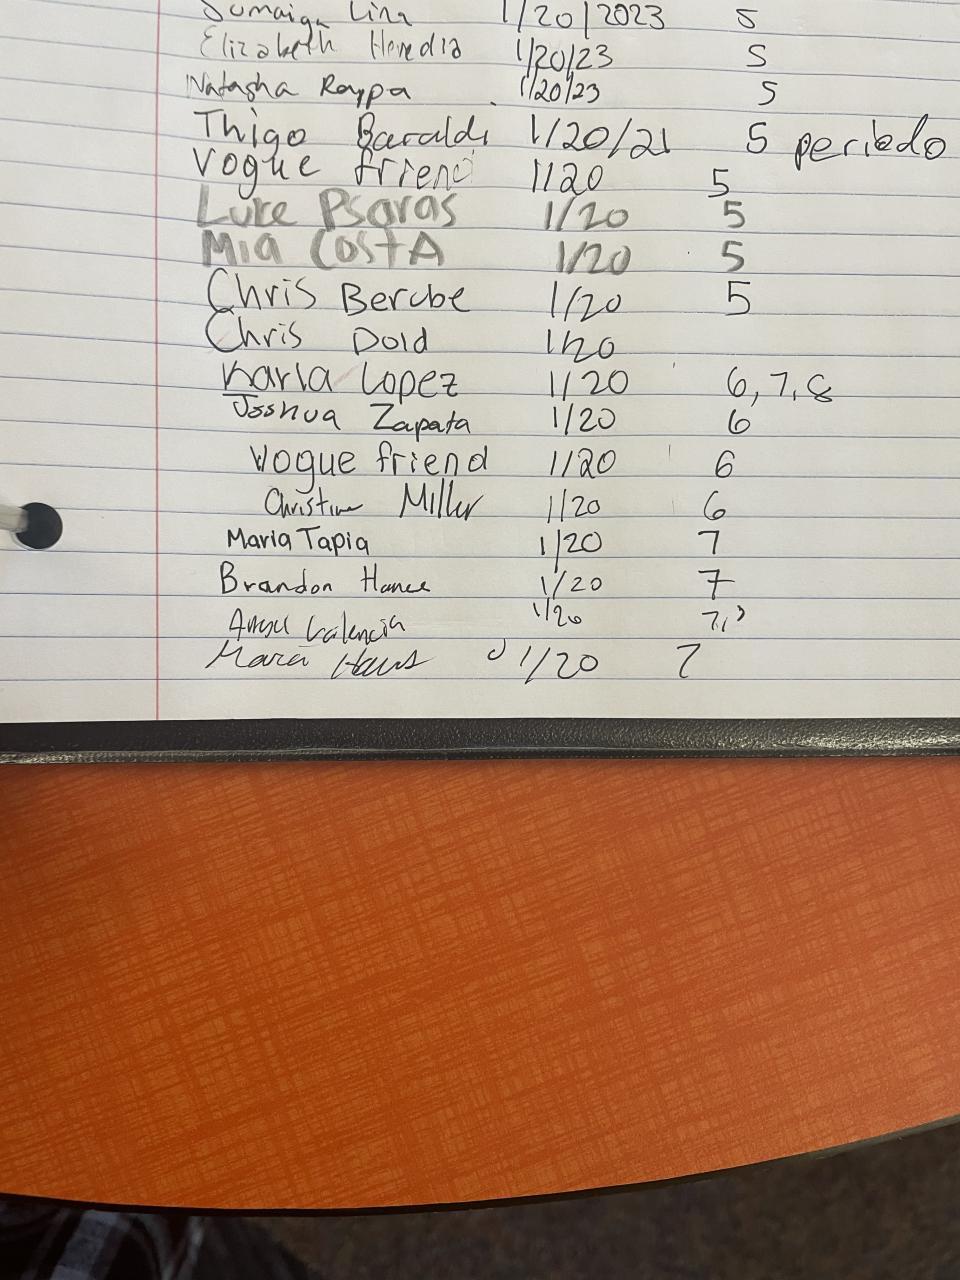 Sumaiya Lira 1/20/2023 5
Elizabeth Heredia 1/20/23 5
Natasha Raypa 1/20/23 5
Thigo Baraldi 1/20/21 5 periodo
Vogue friend 1/20 5
Luke Psaras 1/20 5
Mia CostA 1/20 5
Chris Berube 1/20 5
Chris Dold 1/20
Karla Lopez 1/20 6, 7, 8
Joshua Zapata 1/20 6
Vogue friend 1/20 6
Christine Miller 1/20 6
Maria Tapia 1/20 7
Brandon Hance 1/20 7
Valencia 1/20 7,
1/20 7